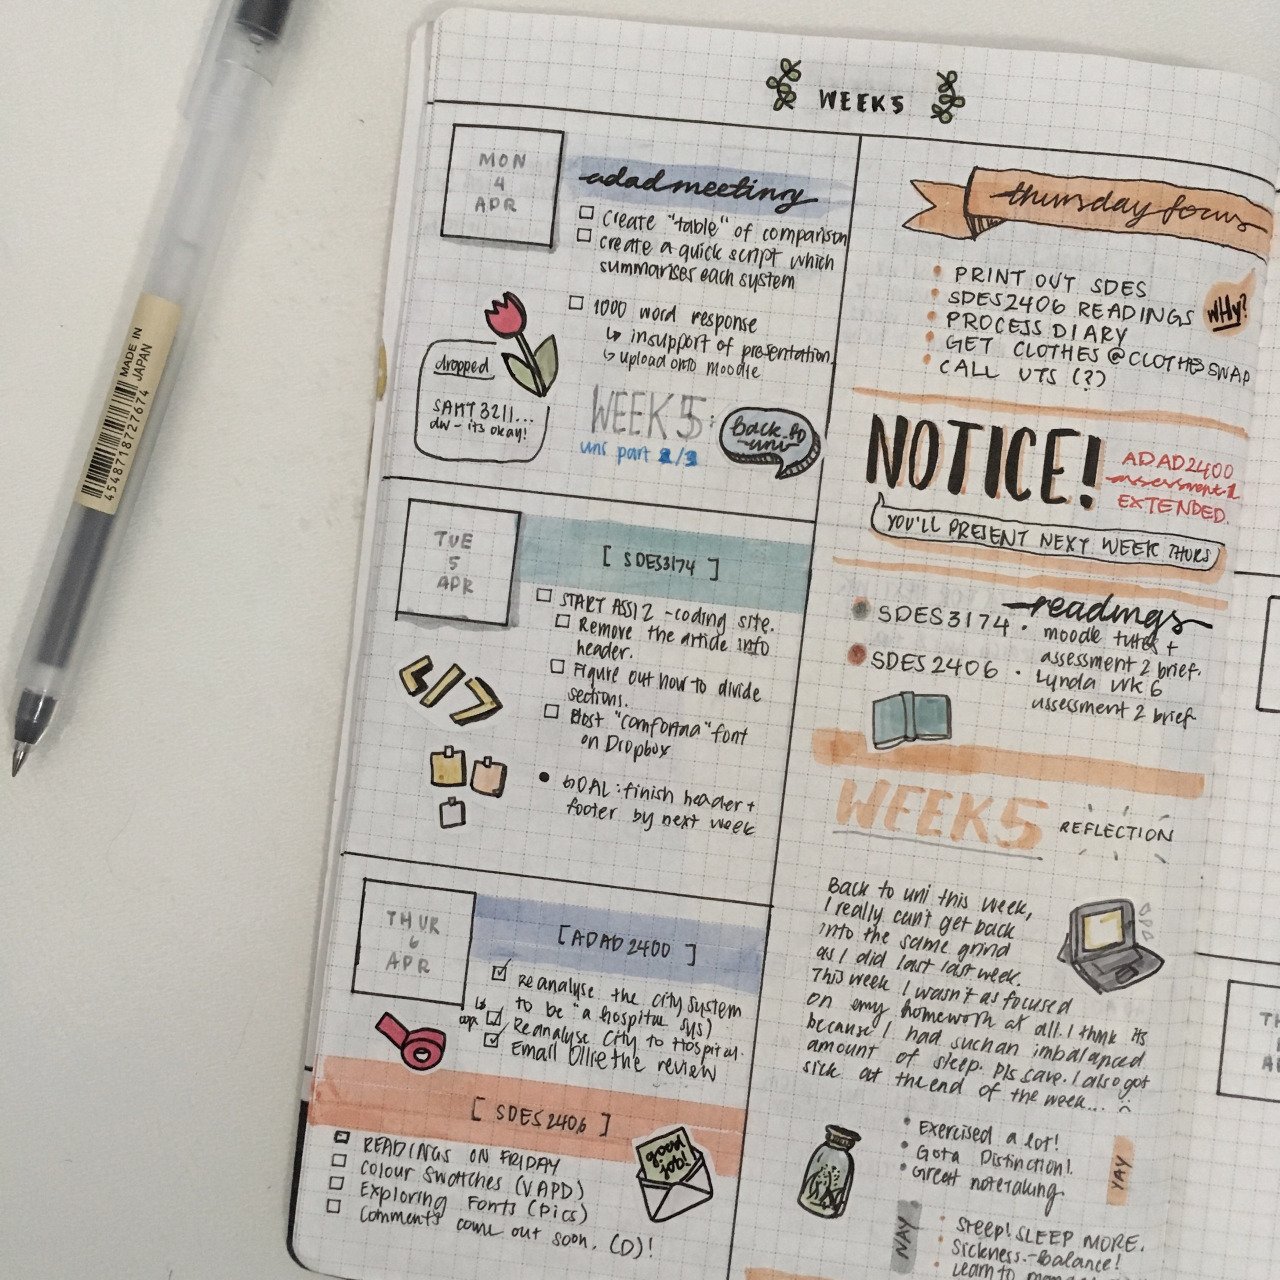 WEEK 5
MON
4
APR
adad meeting
Create "table" of comparison
create a quick script which
summarises each system
1000 word response
↳ in support of presentation
↳ upload onto moodle
dropped
SAHT3211...
dw - its okay!
WEEK 5:
uni part 2/3
back to
uni
TUE
5
APR
[ SDES3174 ]
START ASSI 2 - coding site.
Remove the article info
header.
Figure out how to divide
sections.
Host "Comfortaa" font
on Dropbox
</>
GOAL: finish header +
footer by next week
THUR
6
APR
[ADAD 2400 ]
Reanalyse the city system
to be "a hospital sys)
Reanalyse City to Hospital.
Email Ollie the review
[ SDES 2406 ]
READINGS ON FRIDAY
Colour Swatches (VAPD)
Exploring Fonts (Pics)
Comments come out soon. (D)!
good
job!
thursday focus
PRINT OUT SDES
SDES2406 READINGS
PROCESS DIARY
GET CLOTHES @ CLOTHESSWAP
CALL UTS (?)
WHY?
NOTICE!
ADAD2400
assessment 1
EXTENDED.
YOU'LL PRESENT NEXT WEEK THURS
readings
SDES3174 · moodle tutes +
assessment 2 brief.
SDES2406 · Lynda wk 6
assessment 2 brief
WEEK 5 REFLECTION
Back to uni this week,
I really can't get back
into the same grind
as I did last last week.
This week I wasn't as focused
on my homework at all. I think its
because I had such an imbalanced
amount of sleep. Pls save. I also got
sick at the end of the week... :(
Exercised a lot!
Got a Distinction!
Great notetaking.
YAY
NAY
Sleep! SLEEP MORE.
Sickness - Balance!
Learn to
MADE IN
JAPAN
4548718727674